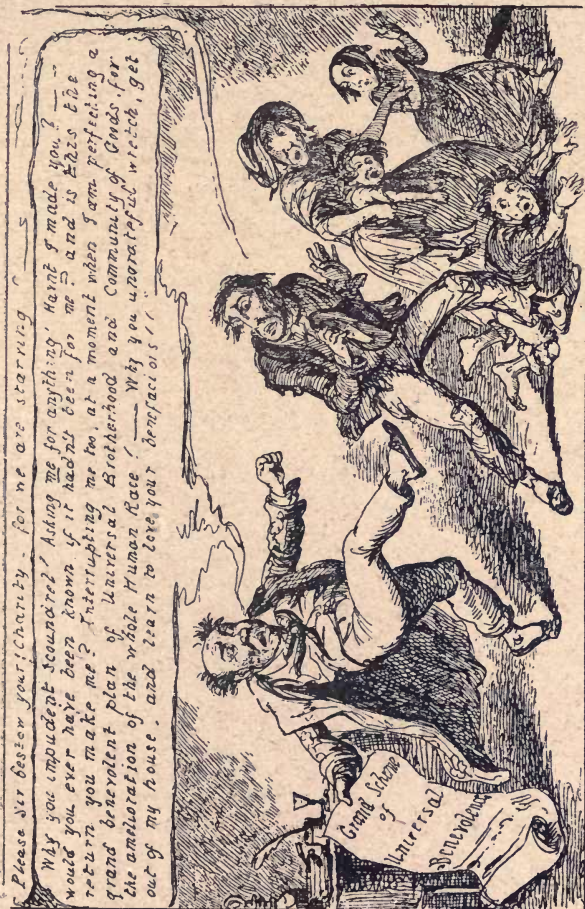 Please Sir bestow your Charity - for we are starving -
Why you impudent Scoundrel! Asking me for anything! Havnt I made you? —
would you ever have been known if it hadn't been for me? and is this the
return you make me? Interrupting me too at a moment when I am perfecting a
grand benevolent plan of Universal Brotherhood and Community of Goods, for
the amelioration of the whole Human Race! — Why you ungrateful wretch, get
out of my house, and learn to love your benefactors!!
Grand Scheme
of
Universal
Benevolence